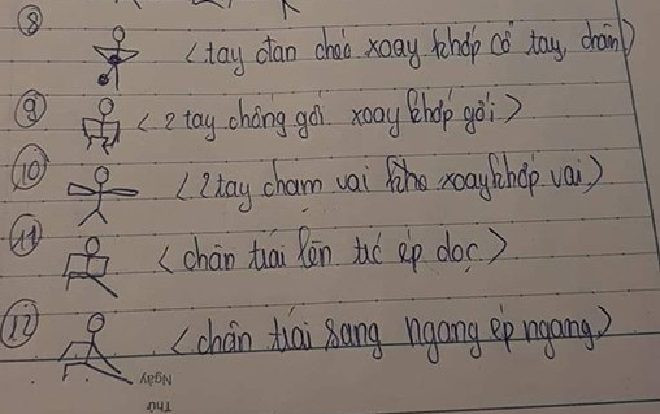 8 < tay đan chéo xoay khớp cổ tay, chân>
9 < 2 tay chống gối xoay khớp gối >
10 < 2 tay chạm vai xoay khớp vai >
11 < chân trái lên ép dọc >
12 < chân trái sang ngang ép ngang >
Ngày
Thứ